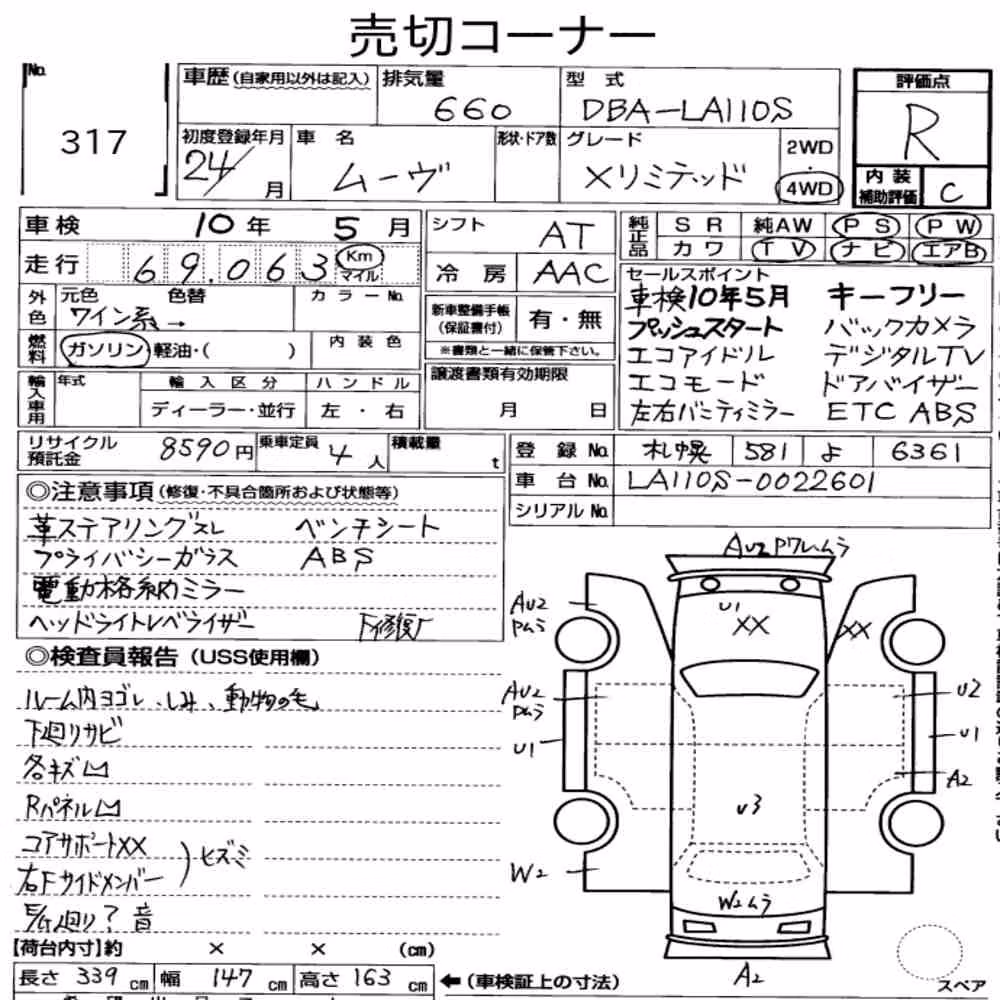 売切コーナー
No. 317
車歴(自家用以外は記入)
排気量 660
型式 DBA-LA110S
評価点 R
初度登録年月 24/ 月
車名 ムーヴ
形状・ドア数
グレード Xリミテッド
2WD ・ 4WD
内装補助評価 C
車検 10年 5月
走行 69,063 Km マイル
シフト AT
冷房 AAC
純正品 SR 純AW PS PW
カワ TV ナビ エアB
外色 元色 ワイン系→ 色替 カラーNo.
燃料 ガソリン・軽油・( ) 内装色
新車整備手帳(保証書付) 有・無
※書類と一緒に保管下さい。
セールスポイント
車検10年5月 キーフリー
プッシュスタート バックカメラ
エコアイドル デジタルTV
エコモード ドアバイザー
左右バニティミラー ETC ABS
輸入車用 年式 輸入区分 ハンドル
ディーラー・並行 左・右
譲渡書類有効期限
月 日
リサイクル預託金 8590円 乗車定員 4人 積載量 t
登録No. 札幌 581 よ 6361
車台No. LA110S-0022601
シリアルNo.
◎注意事項(修復・不具合箇所および状態等)
革ステアリングスレ ベンチシート
プライバシーガラス ABS
電動格納ミラー
ヘッドライトレベライザー 下修復
◎検査員報告(USS使用欄)
ルーム内ヨゴレ、しみ、動物の毛
下廻りサビ
各キズ凹
Rパネル凹
コアサポートXX
右Fサイドメンバー ) ヒズミ
E/G廻り?音
AU2 Pワレムラ
AU2 Pムラ
U1
XX
XX
AU2 Pムラ
U2
U1
U1
A2
U3
W2
W2ムラ
A2
スペア
【荷台内寸】約 × × (cm)
長さ 339 cm 幅 147 cm 高さ 163 cm ←(車検証上の寸法)